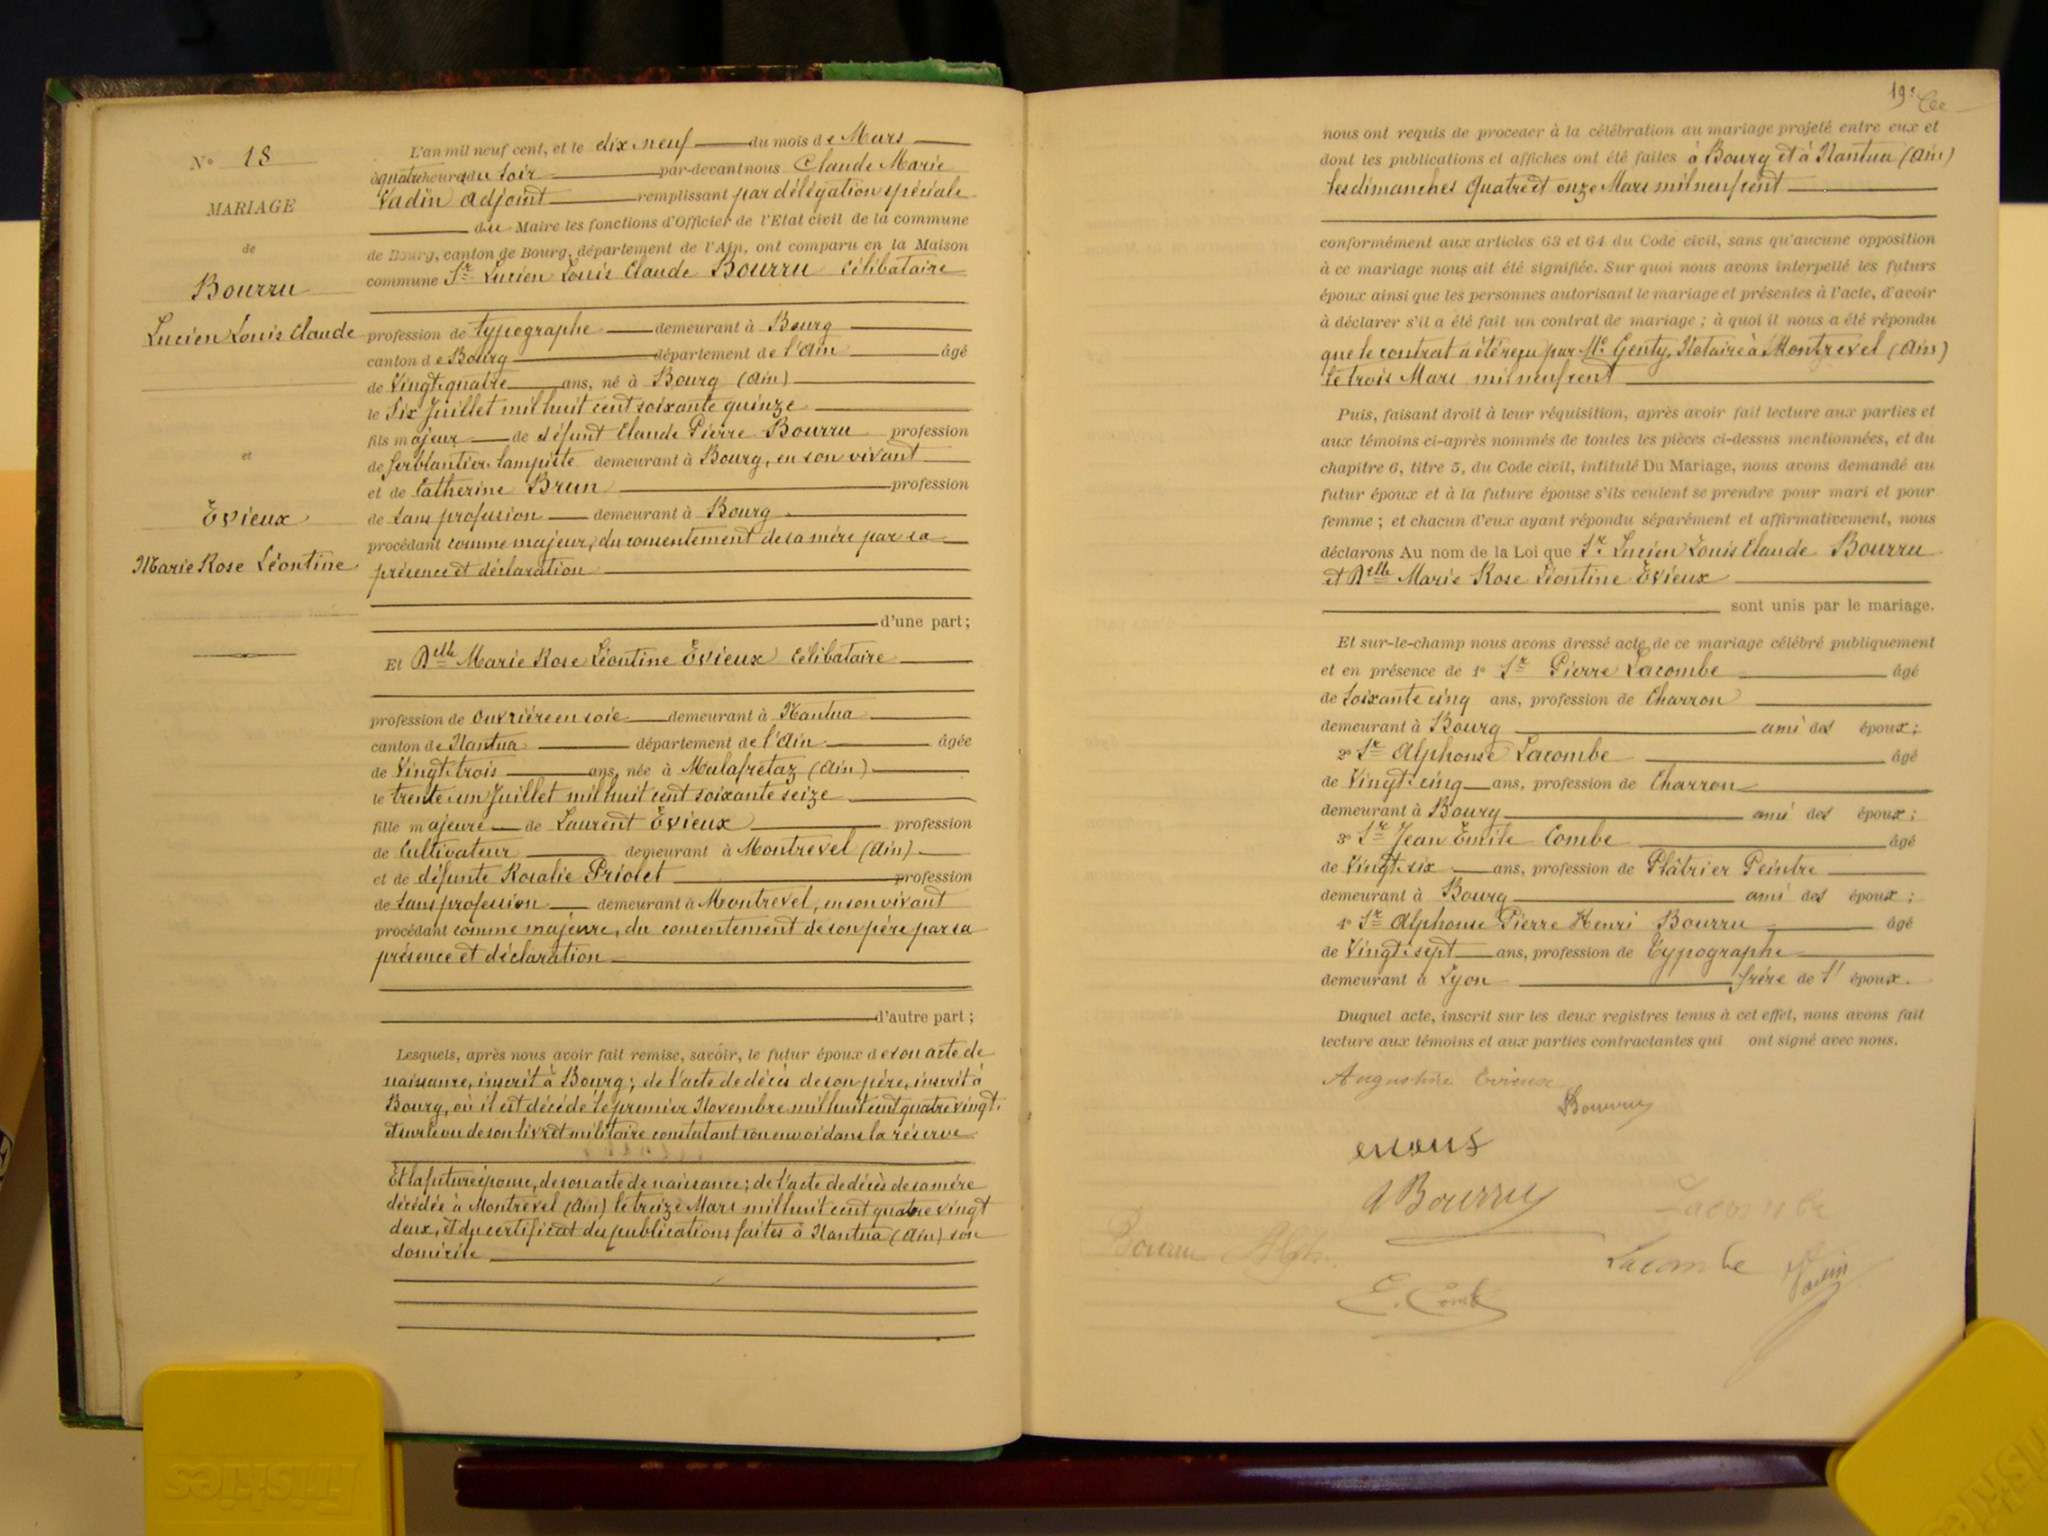 N° 18
MARIAGE
de
Bourru
Lucien Louis Claude
et
Evieux
Marie Rose Léontine
L'an mil neuf cent, et le dix neuf du mois de Mars
à quatre heures du soir par-devant nous Claude Marie
Vadin adjoint remplissant par délégation spéciale
du Maire les fonctions d'Officier de l'Etat civil de la commune
de Bourg, canton de Bourg, département de l'Ain, ont comparu en la Maison
commune Sr Lucien Louis Claude Bourru célibataire
profession de typographe demeurant à Bourg
canton de Bourg département de l'Ain âgé
de Vingt quatre ans, né à Bourg (Ain)
le Six Juillet mil huit cent soixante quinze
fils majeur de défunt Claude Pierre Bourru profession
de ferblantier lampiste demeurant à Bourg, en son vivant
et de Catherine Brun profession
de Sans profession demeurant à Bourg
procédant comme majeur, du consentement de sa mère par sa
présence et déclaration
d'une part;
Et Delle Marie Rose Léontine Evieux célibataire
profession de Ouvrière en soie demeurant à Nantua
canton de Nantua département de l'Ain âgée
de Vingt trois ans, née à Malafretaz (Ain)
le trente un Juillet mil huit cent soixante seize
fille majeure de Laurent Evieux profession
de Cultivateur demeurant à Montrevel (Ain)
et de défunte Rosalie Priolet profession
de Sans profession demeurant à Montrevel, en son vivant
procédant comme majeure, du consentement de son père par sa
présence et déclaration
d'autre part;
Lesquels, après nous avoir fait remise, savoir, le futur époux de son acte de
naissance, inscrit à Bourg; de l'acte de décès de son père, inscrit à
Bourg, où il est décédé le premier Novembre mil huit cent quatre vingt,
et sur le vu de son livret militaire constatant son envoi dans la réserve
Et la future épouse, de son acte de naissance; de l'acte de décès de sa mère
décédée à Montrevel (Ain) le treize Mars mil huit cent quatre vingt
deux, et du certificat des publications faites à Nantua (Ain) son
domicile
19e
nous ont requis de procéder à la célébration du mariage projeté entre eux et
dont les publications et affiches ont été faites à Bourg et à Nantua (Ain)
les dimanches Quatre et onze Mars mil neuf cent
conformément aux articles 63 et 64 du Code civil, sans qu'aucune opposition
à ce mariage nous ait été signifiée. Sur quoi nous avons interpellé les futurs
époux ainsi que les personnes autorisant le mariage et présentes à l'acte, d'avoir
à déclarer s'il a été fait un contrat de mariage; à quoi il nous a été répondu
que le contrat a été reçu par Me Genty, Notaire à Montrevel (Ain)
le trois Mars mil neuf cent
Puis, faisant droit à leur réquisition, après avoir fait lecture aux parties et
aux témoins ci-après nommés de toutes les pièces ci-dessus mentionnées, et du
chapitre 6, titre 5, du Code civil, intitulé Du Mariage, nous avons demandé au
futur époux et à la future épouse s'ils veulent se prendre pour mari et pour
femme; et chacun d'eux ayant répondu séparément et affirmativement, nous
déclarons Au nom de la Loi que Sr Lucien Louis Claude Bourru
et Delle Marie Rose Léontine Evieux
sont unis par le mariage.
Et sur-le-champ nous avons dressé acte de ce mariage célébré publiquement
et en présence de 1° Sr Pierre Lacombe âgé
de Soixante cinq ans, profession de Charron
demeurant à Bourg ami des époux;
2° Sr Alphonse Lacombe âgé
de Vingt cinq ans, profession de Charron
demeurant à Bourg ami des époux;
3° Sr Jean Emile Combe âgé
de Vingt six ans, profession de Plâtrier Peintre
demeurant à Bourg ami des époux;
4° Sr Alphonse Pierre Henri Bourru âgé
de Vingt sept ans, profession de Typographe
demeurant à Lyon frère de l'époux.
Duquel acte, inscrit sur les deux registres tenus à cet effet, nous avons fait
lecture aux témoins et aux parties contractantes qui ont signé avec nous.
Augustine Evieux
Bourru
A Bourru
Lacombe
Bourru Alph.
Lacombe
Vadin
E. Combe
Friskies